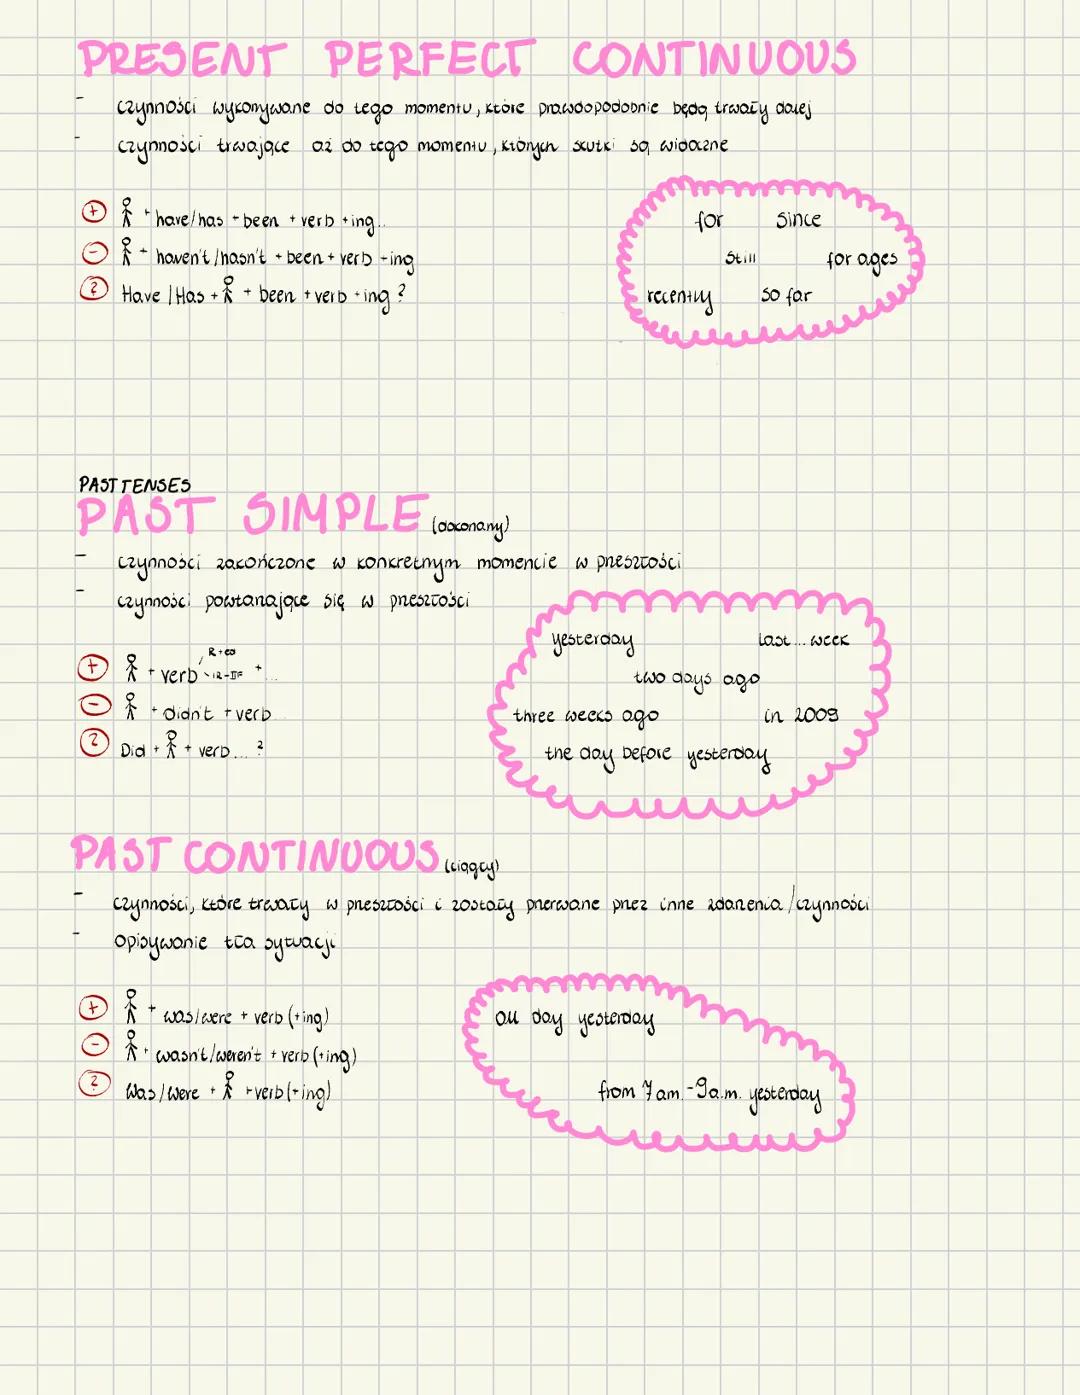 PRESENT PERFECT CONTINUOUS
- czynności wykonywane do tego momentu, które prawdopodobnie będą trwały dalej
- czynności trwające aż do tego momentu, których skutki są widoczne
+ + have/has + been + verb +ing...
- + haven't/hasn't + been + verb +ing
? Have / Has + + been + verb +ing ?
for since
still for ages
recently so far
PAST TENSES
PAST SIMPLE (dokonany)
- czynności zakończone w konkretnym momencie w przeszłości
- czynności powtarzające się w przeszłości
+ + verb R+ed IR-IIF + ...
- + didn't + verb...
? Did + + verb... ?
yesterday last... week
two days ago
three weeks ago in 2009
the day before yesterday
PAST CONTINUOUS (ciągły)
- czynności, które trwały w przeszłości i zostały przerwane przez inne zdarzenia/czynności
- opisywanie tła sytuacji
+ + was/were + verb (+ing)
- + wasn't/weren't + verb (+ing)
? Was/were + + verb (+ing)
all day yesterday
from 7am.-9a.m. yesterday